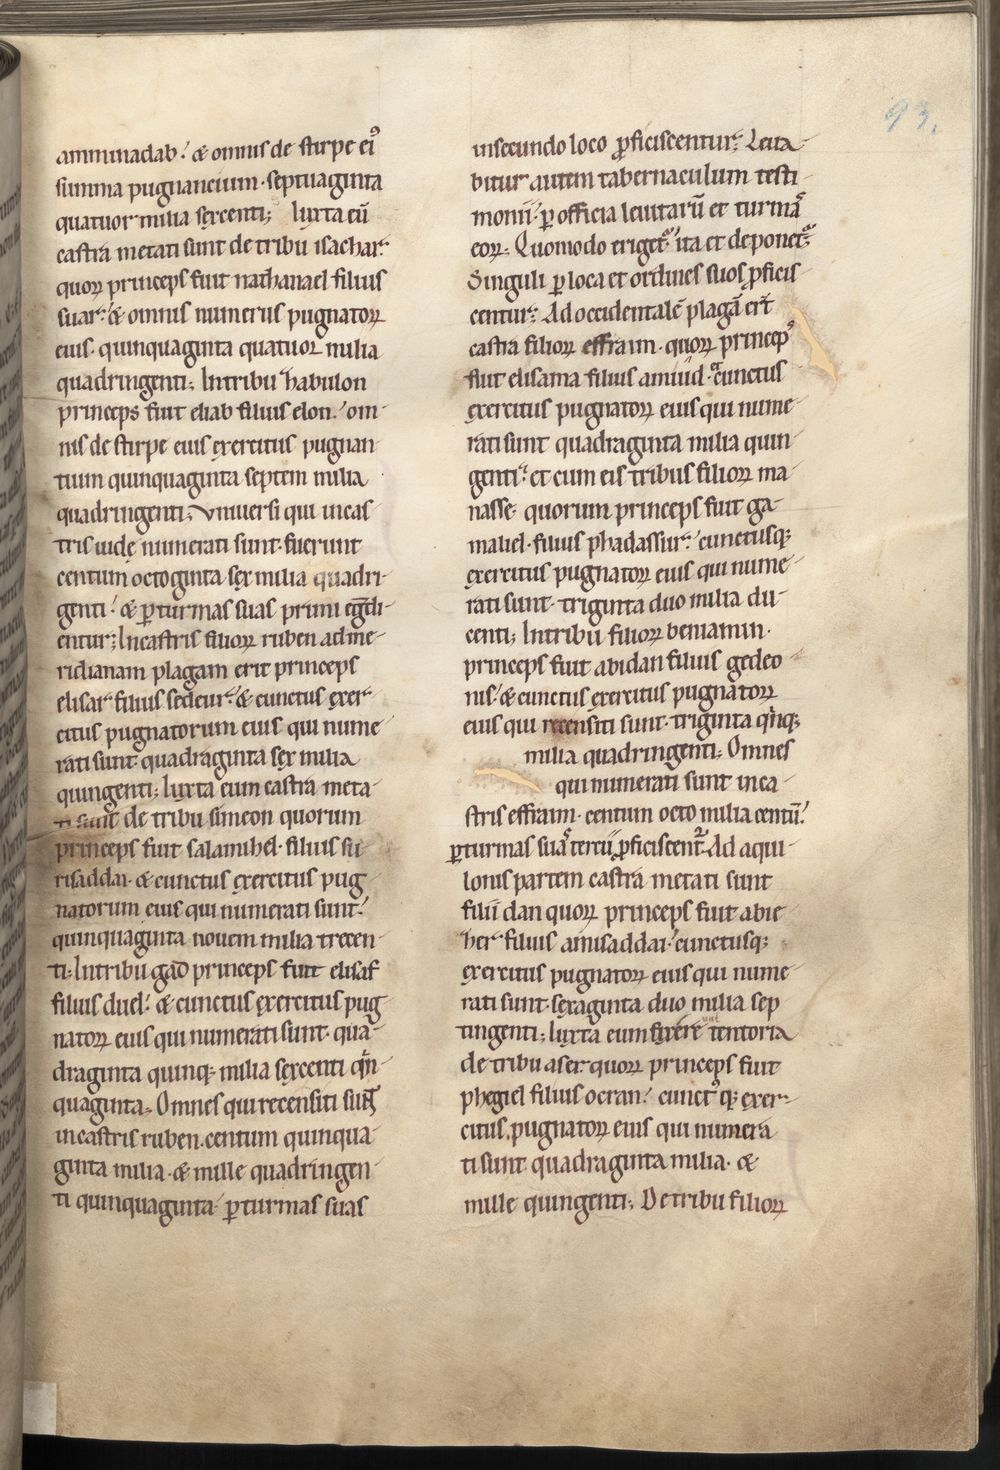 93.
amminadab. & omnis de stirpe eiꝰ
summa pugnancium. septuaginta
quatuor milia sexcenti; Iuxta eū
castra metati sunt de tribu isachar.
quoꝝ princeps fuit nathanael filius
suar. & omnis numerus pugnatoꝝ
eius. quinquaginta quatuor milia
quadringenti; Intribu zabulon
princeps fuit eliab filius elon. om-
nis de stirpe eius exercitus pugnan-
tium quinquaginta septem milia
quadringenti; Vniuersi qui incas-
tris iude numerati sunt. fuerunt
centum octoginta sex milia quadri-
genti. & ꝑ turmas suas primi egdi-
entur; Incastris filioꝝ ruben ad me-
ridianam plagam erit princeps
elisar filius sedeur. & cunctus exer-
citus pugnatorum eius qui nume-
rati sunt quadraginta sex milia
quingenti; Iuxta eum castra meta-
ti sunt de tribu simeon quorum
princeps fuit salamihel. filius su-
risaddai. & cunctus exercitus pug-
natorum eius qui numerati sunt.
quinquaginta nouem milia trecen-
ti. Intribu gad princeps fuit elisaf
filius duel. & cunctus exercitus pug-
natoꝝ eius qui numerati sunt. qua-
draginta quinq; milia sexcenti qīn-
quaginta. Omnes qui recensiti sunt
incastris ruben. centum quinqua-
ginta milia. & mille quadringen-
ti quinquaginta ꝑ turmas suas
insecundo loco ꝓficiscentur. Leua-
bitur autem tabernaculum testi-
monii. ꝑ officia leuitarū et turmaꝝ
eoꝝ. Quomodo erigetᷣ. ita et deponetᷣ.
Singuli ꝑ loca et ordines suos ꝓficis-
centur. Ad occidentalē plagā erit
castra filioꝝ effraim. quoꝝ princepꝰ
fuit elisama filius amiud. cunctus
exercitus pugnatoꝝ eius qui nume-
rati sunt quadraginta milia quin-
genti. et cum eis tribus filioꝝ ma-
nasse. quorum princeps fuit ga-
maliel. filius phadassur. cunctusq;
exercitus pugnatoꝝ eius qui nume-
rati sunt. triginta duo milia du-
centi; Intribu filioꝝ beniamin.
princeps fuit abidan filius gedeo-
nis. & cunctus exercitus pugnatoꝝ
eius qui recensiti sunt. triginta qinq;
milia quadringenti. Omnes
qui numerati sunt inca-
stris effraim. centum octo milia centū.
ꝑ turmas suas tercii ꝓficiscentᷣ. Ad aqui-
lonis partem castra metati sunt
filii dan quoꝝ princeps fuit abie-
zer filius amisaddai. cunctusq;
exercitus pugnatoꝝ eius qui nume-
rati sunt. sexaginta duo milia sep-
tingenti; Iuxta eum fixere tentoria
de tribu aser. quoꝝ princeps fuit
phegiel filius ocran. cunctꝰq; exer-
citus pugnatoꝝ eius qui numera-
ti sunt quadraginta milia. &
mille quingenti; De tribu filioꝝ